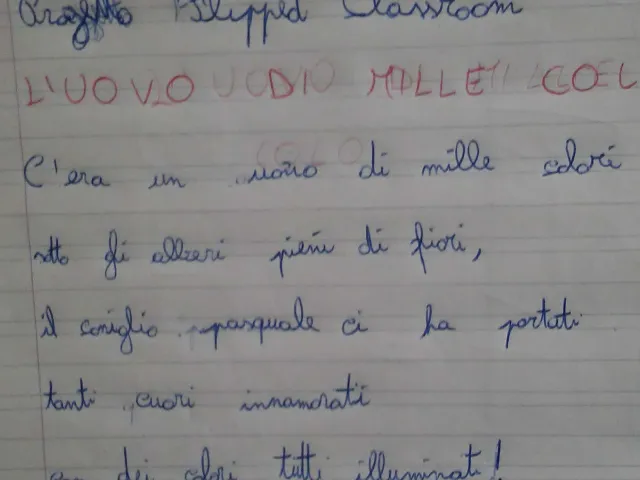 Progetto Flipped Classroom
L'UOVO DI MILLE COL
C'era un uovo di mille colori
sotto gli alberi pieni di fiori,
il coniglio pasquale ci ha portati
tanti cuori innamorati
dei colori tutti illuminati!